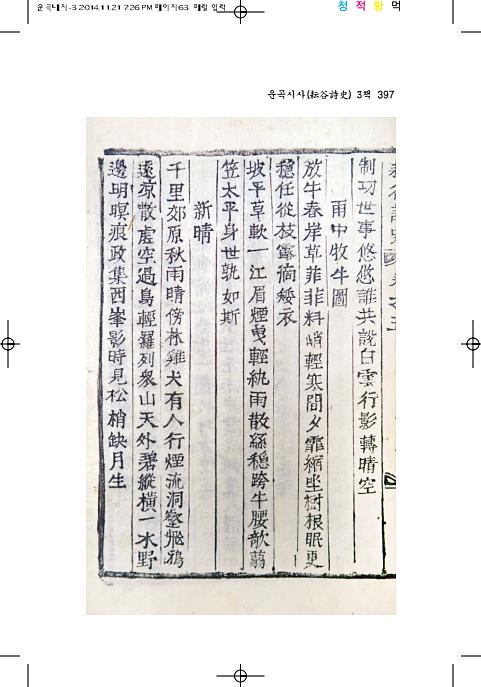 운곡대지-3 2014.11.21 7:26 PM 페이지63
청 적 황 먹
운곡시사(耘谷詩史) 3책 397
制切世事悠悠誰共說白雲行影轉晴空
雨中牧牛圖
放牛春岸草菲菲料峭輕寒間夕霏縮坐樹根眠更
穩任從枝露滴綏衣
坡平草軟一江眉煙曳輕紈雨散絲穩跨牛腰欹蒻
笠太平身世孰如斯
新晴
千里郊原秋雨晴傍林雞犬有人行煙流洞壑飛鴉
遠凉散虛空過鳥輕羅列衆山天外碧縱橫一水野
邊明暝痕政集西峯影時見松梢缺月生